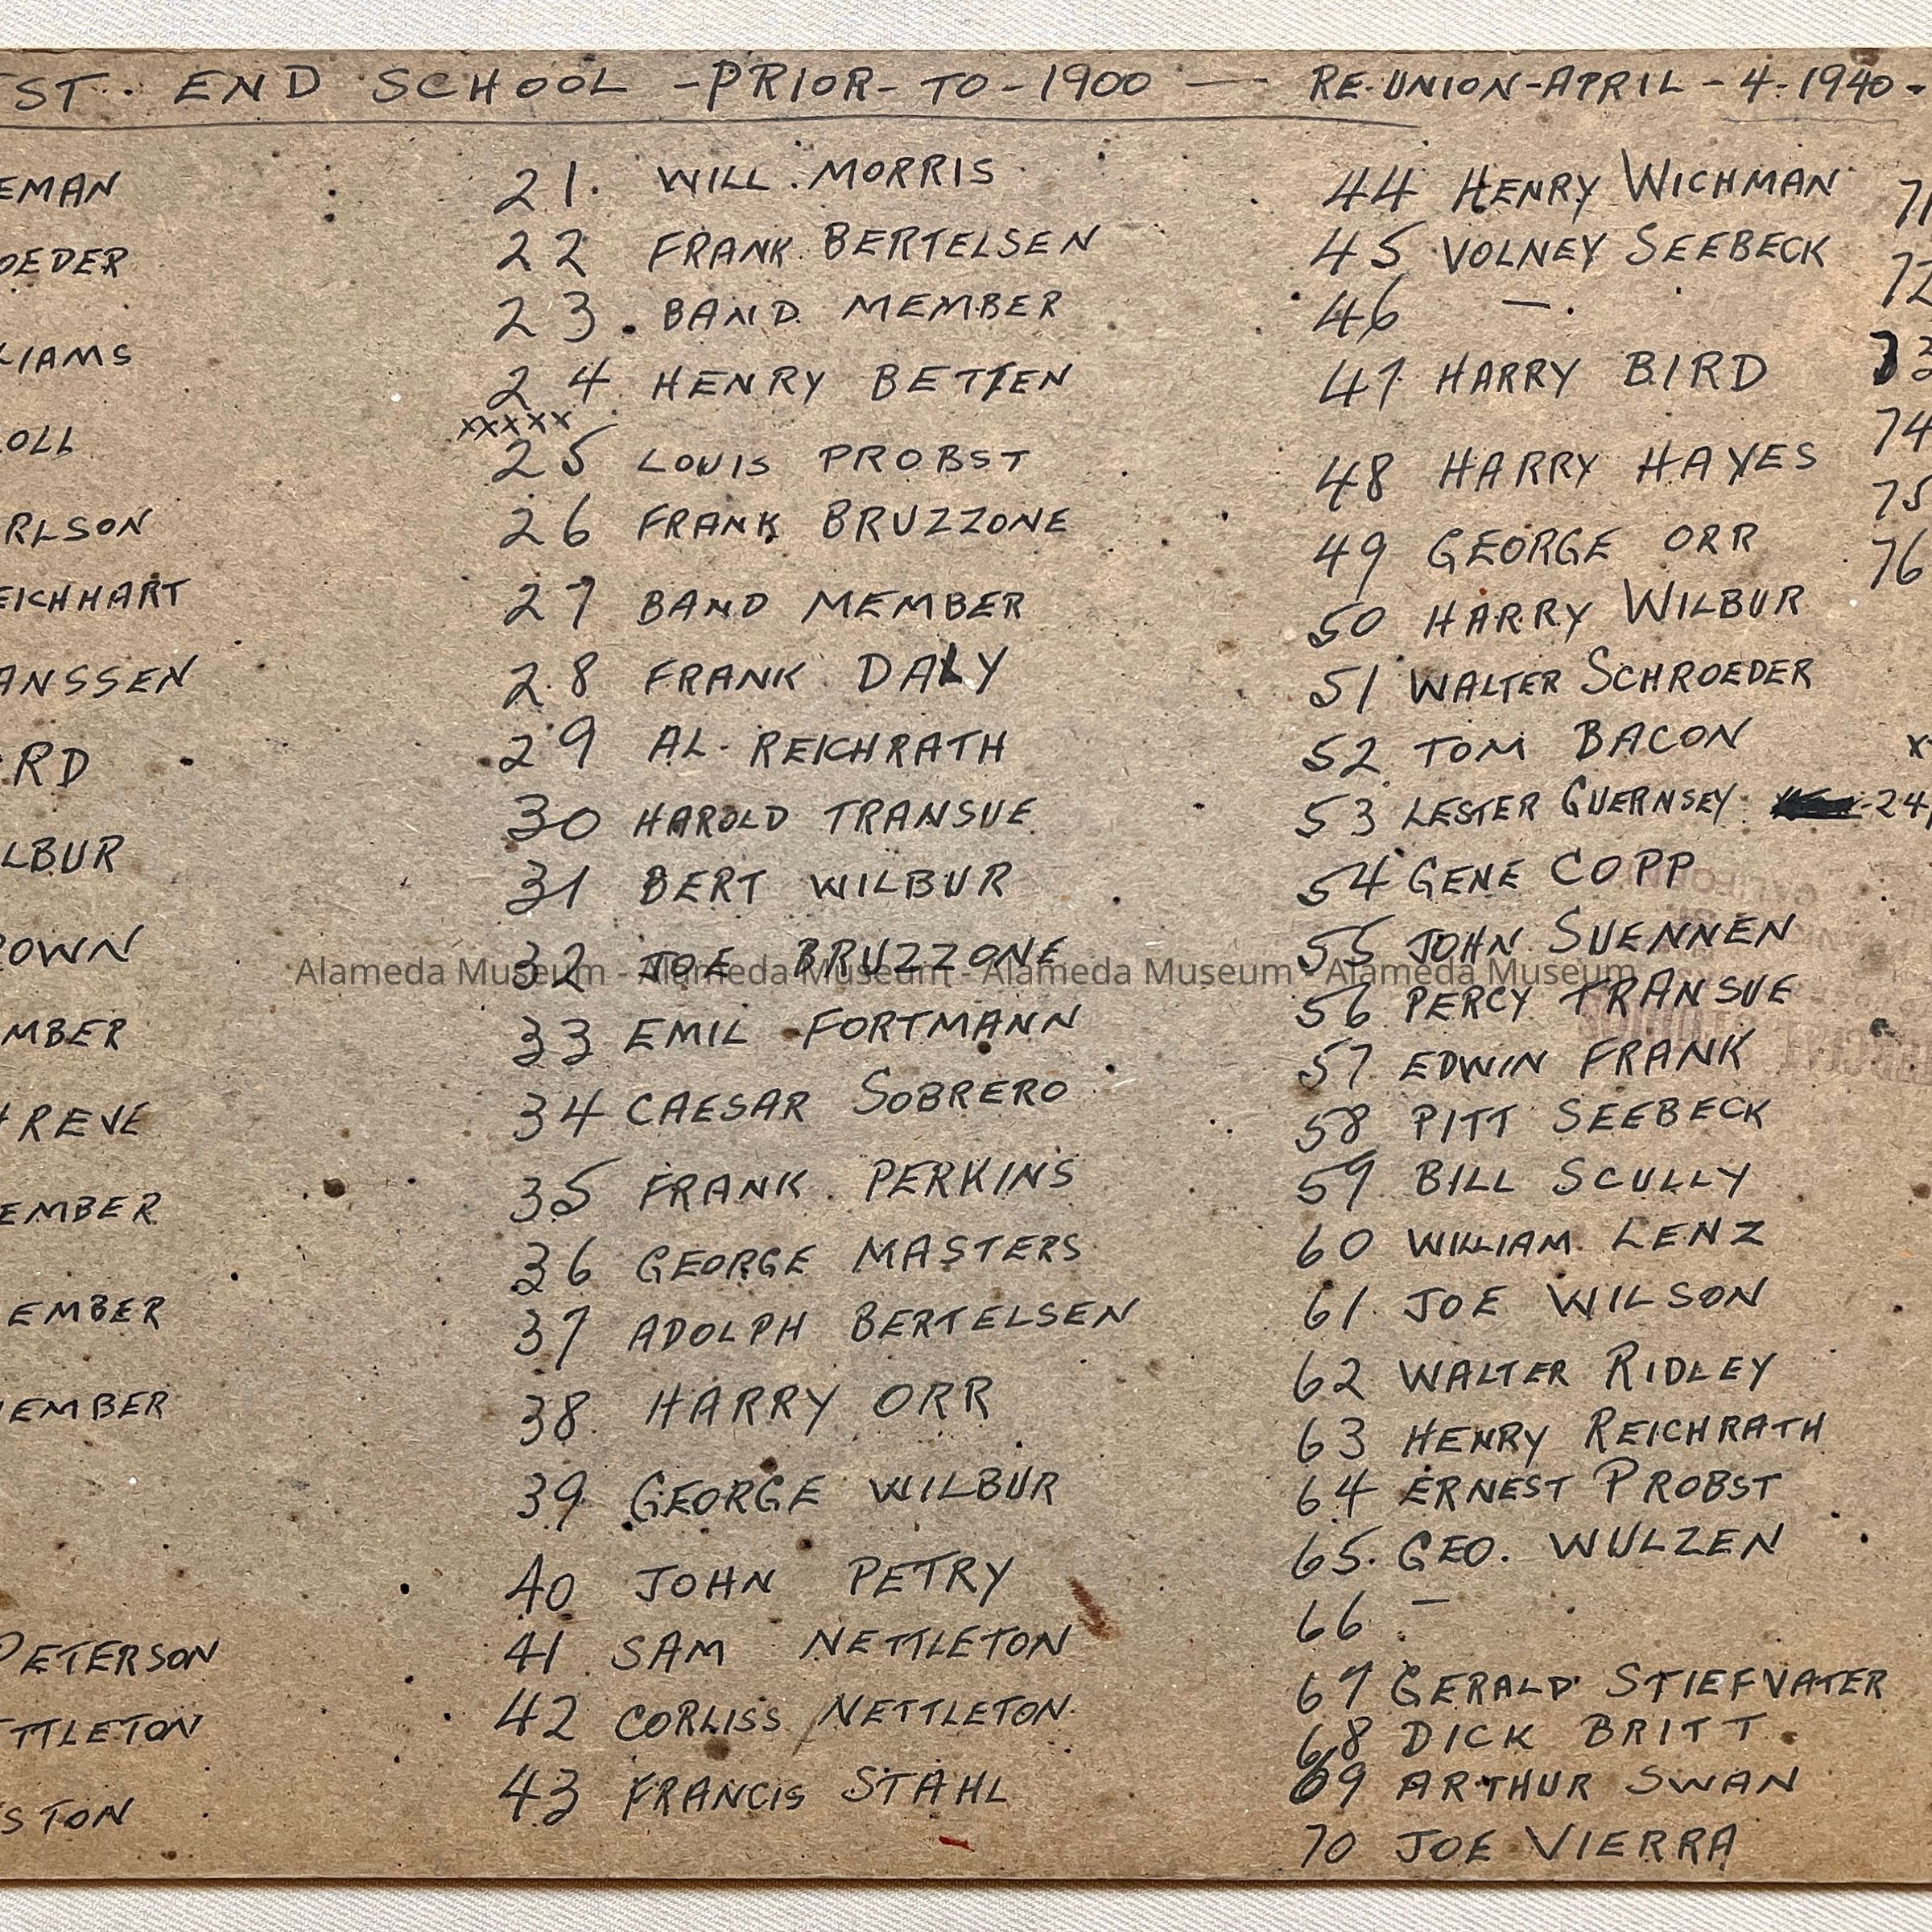 ST. END SCHOOL - PRIOR - TO - 1900 — RE-UNION - APRIL - 4 - 1940 -
EMAN
OEDER
LIAMS
OLL
RLSON
EICHHART
ANSSEN
RD
LBUR
ROWN
MBER
HREVE
EMBER
EMBER
EMBER
PETERSON
TTLETON
STON
21. WILL MORRIS
22 FRANK BERTELSEN
23. BAND MEMBER
24 HENRY BETTEN
xxxxx
25 LOUIS PROBST
26 FRANK BRUZZONE
27 BAND MEMBER
28 FRANK DALY
29 AL. REICHRATH
30 HAROLD TRANSUE
31 BERT WILBUR
32 JOE BRUZZONE
33 EMIL FORTMANN
34 CAESAR SOBRERO
35 FRANK PERKINS
36 GEORGE MASTERS
37 ADOLPH BERTELSEN
38 HARRY ORR
39 GEORGE WILBUR
40 JOHN PETRY
41 SAM NETTLETON
42 CORLISS NETTLETON
43 FRANCIS STAHL
44 HENRY WICHMAN
45 VOLNEY SEEBECK
46 —.
47 HARRY BIRD
48 HARRY HAYES
49 GEORGE ORR
50 HARRY WILBUR
51 WALTER SCHROEDER
52 TOM BACON
53 LESTER GUERNSEY - 24
54 GENE COPP
55 JOHN SUENNEN
56 PERCY TRANSUE
57 EDWIN FRANK
58 PITT SEEBECK
59 BILL SCULLY
60 WILLIAM LENZ
61 JOE WILSON
62 WALTER RIDLEY
63 HENRY REICHRATH
64 ERNEST PROBST
65. GEO. WULZEN
66 —
67 GERALD STIEFVATER
68 DICK BRITT
69 ARTHUR SWAN
70 JOE VIERRA
71
72
73
74
75
76
Alameda Museum - Alameda Museum - Alameda Museum - Alameda Museum